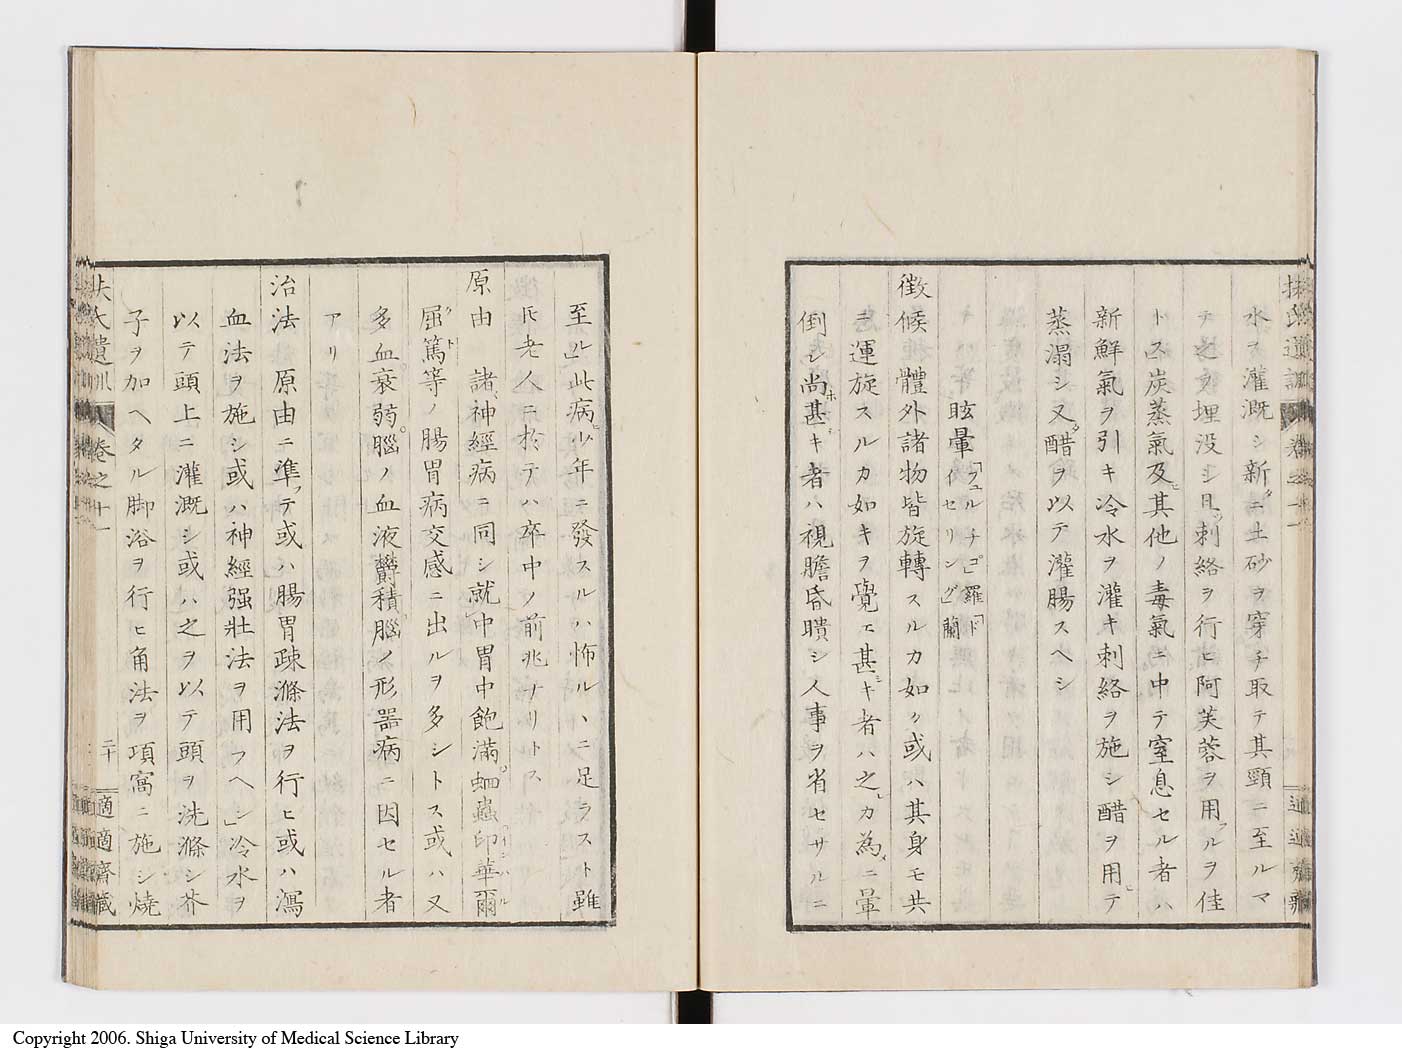 水ヲ灌漑シ新ニ土砂ヲ穿チ取テ其頸ニ至ルマ
テ之ヲ埋没シ且刺絡ヲ行ヒ阿芙蓉ヲ用ルヲ佳
トス炭蒸氣及其他ノ毒氣ニ中テ窒息セル者ハ
新鮮氣ヲ引キ冷水ヲ灌キ刺絡ヲ施シ醋ヲ用テ
蒸溻シ又醋ヲ以テ灌腸スヘシ
眩暈「フェルチゴ」羅「ドイセリング」蘭
徴候 體外諸物皆旋轉スルカ如ク或ハ其身モ共
ニ運旋スルカ如キヲ覺エ甚キ者ハ之カ為ニ暈
倒シ尚甚キ者ハ視膽昏瞶シ人事ヲ省セサルニ
扶氏遺訓 卷之十一
二十
適適齋藏
至ル」此病少年ニ發スルハ怖ルヽニ足ラスト雖
𪜈老人ニ於テハ卒中ノ前兆ナリトス
原由 諸神經病ニ同シ就中胃中飽滿蛔蟲印華爾
屈篤等ノ腸胃病交感ニ出ルヲ多シトス或ハ又
多血衰弱腦ノ血液鬱積腦ノ形器病ニ因セル者
アリ
治法 原由ニ準テ或ハ腸胃疎滌法ヲ行ヒ或ハ瀉
血法ヲ施シ或ハ神經强壯法ヲ用フヘシ」冷水ヲ
以テ頭上ニ灌漑シ或ハ之ヲ以テ頭ヲ洗滌シ芥
子ヲ加ヘタル脚浴ヲ行ヒ角法ヲ項窩ニ施シ燒
Copyright 2006. Shiga University of Medical Science Library